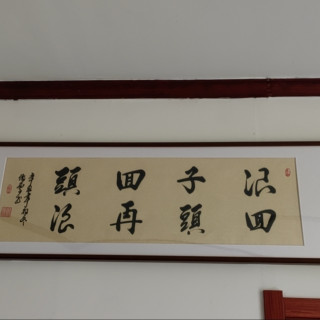 浪子回頭
回頭再浪